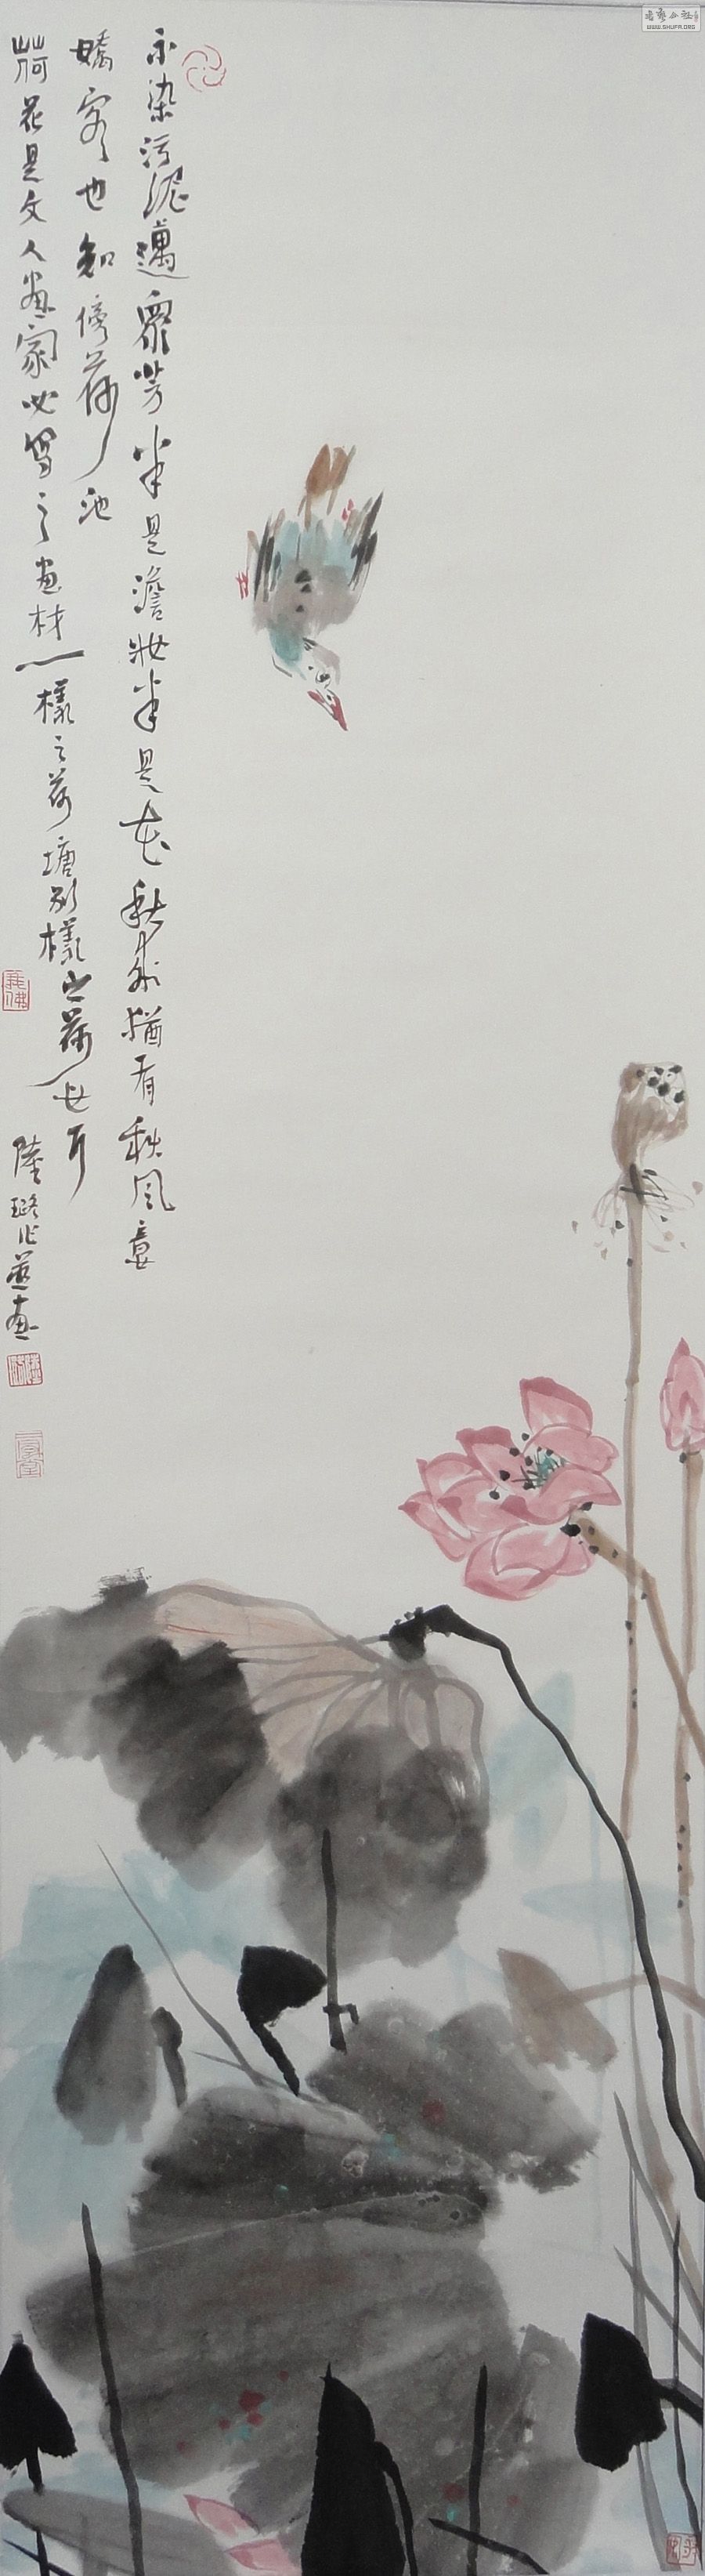 不染污泥邁衆芳半是澹妝半是花秋來猶有秋風意
嬌客也知傍荷池
荷花是文人畫家必寫之畫材一樣之荷塘別樣之荷也耳
陸璐作並畫
WWW.SHUFA.ORG